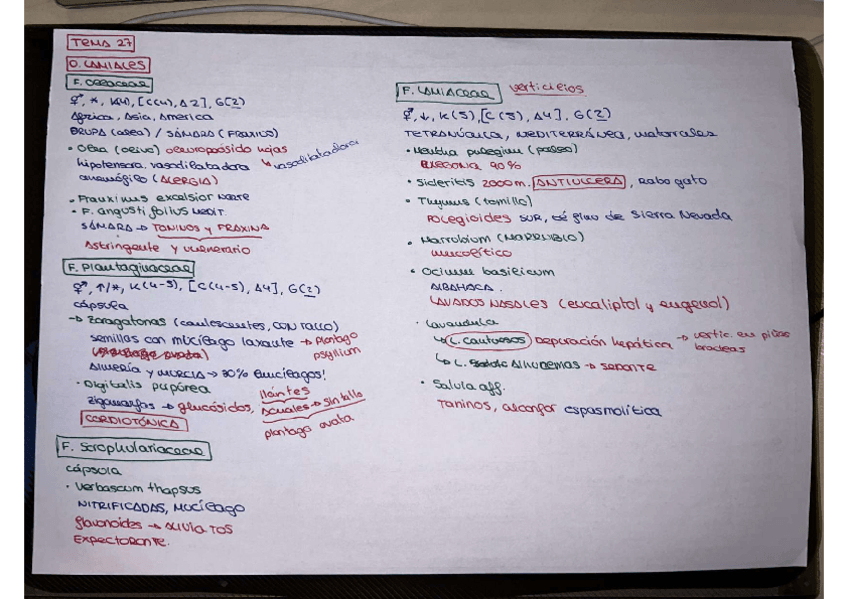 TEMA 27
O. LAMIALES
F. Oleaceae
⚥, *, K(4), [C(4), A2], G(2)
África, Asia, America
DRUPA (olea) / SÁMARA (FRAXIUS)
• Olea (olivo) oleuropósido hojas
hipotensora, vasodilatadora ↳ vasodilatadora
anemófilo (ALERGIA)
• Fraxinus excelsior NORTE
• F. angustifolius MEDIT.
SÁMARA → TANINOS y FRAXINA
Astringente y vulnerario
F. Plantaginaceae
⚥, ↑/*, K(4-5), [C(4-5), A4], G(2)
cápsula
→ Zaragatonas (caulescentes, CON TALLO)
semillas con mucílago laxante → plantago psyllium
ALMERÍA Y MURCIA → 30% mucílagos!
• Digitalis pupúrea
zigomorfas → glucósidos,
CARDIOTÓNICA
llantes
acuales → sin tallo
plantago ovata
F. Scrophulariaceae
cápsula
• Verbascum thapsus
NITRIFICADAS, MUCÍLAGO
flavonoides → ALIVIA TOS
EXPECTORANTE.
F. LAMIACEAE verticilos
⚥, ↓, K(5), [C(5), A4], G(2)
TETRANÚCULA, MEDITERRÁNEA, matorrales
• Mentha pulegium (poleo)
PULEGONA 90%
• Sideritis 2000m. ANTIULCERA, Rabogato
• Thymus (tomillo)
POLEGIOIDES SUR, té fino de Sierra Nevada
• Marrubium (MARRUBIO)
mucolítico
• Ocimum basilicum
ALBAHACA.
LAVADOS NASALES (eucaliptol y eugenol)
• Lavandula
↳ L. stoechas Depuración hepática → vertic. en piñas bracteas
↳ L. Alhucemas → SEDANTE
• Salvia aff.
Taninos, alcanfor espasmolítica